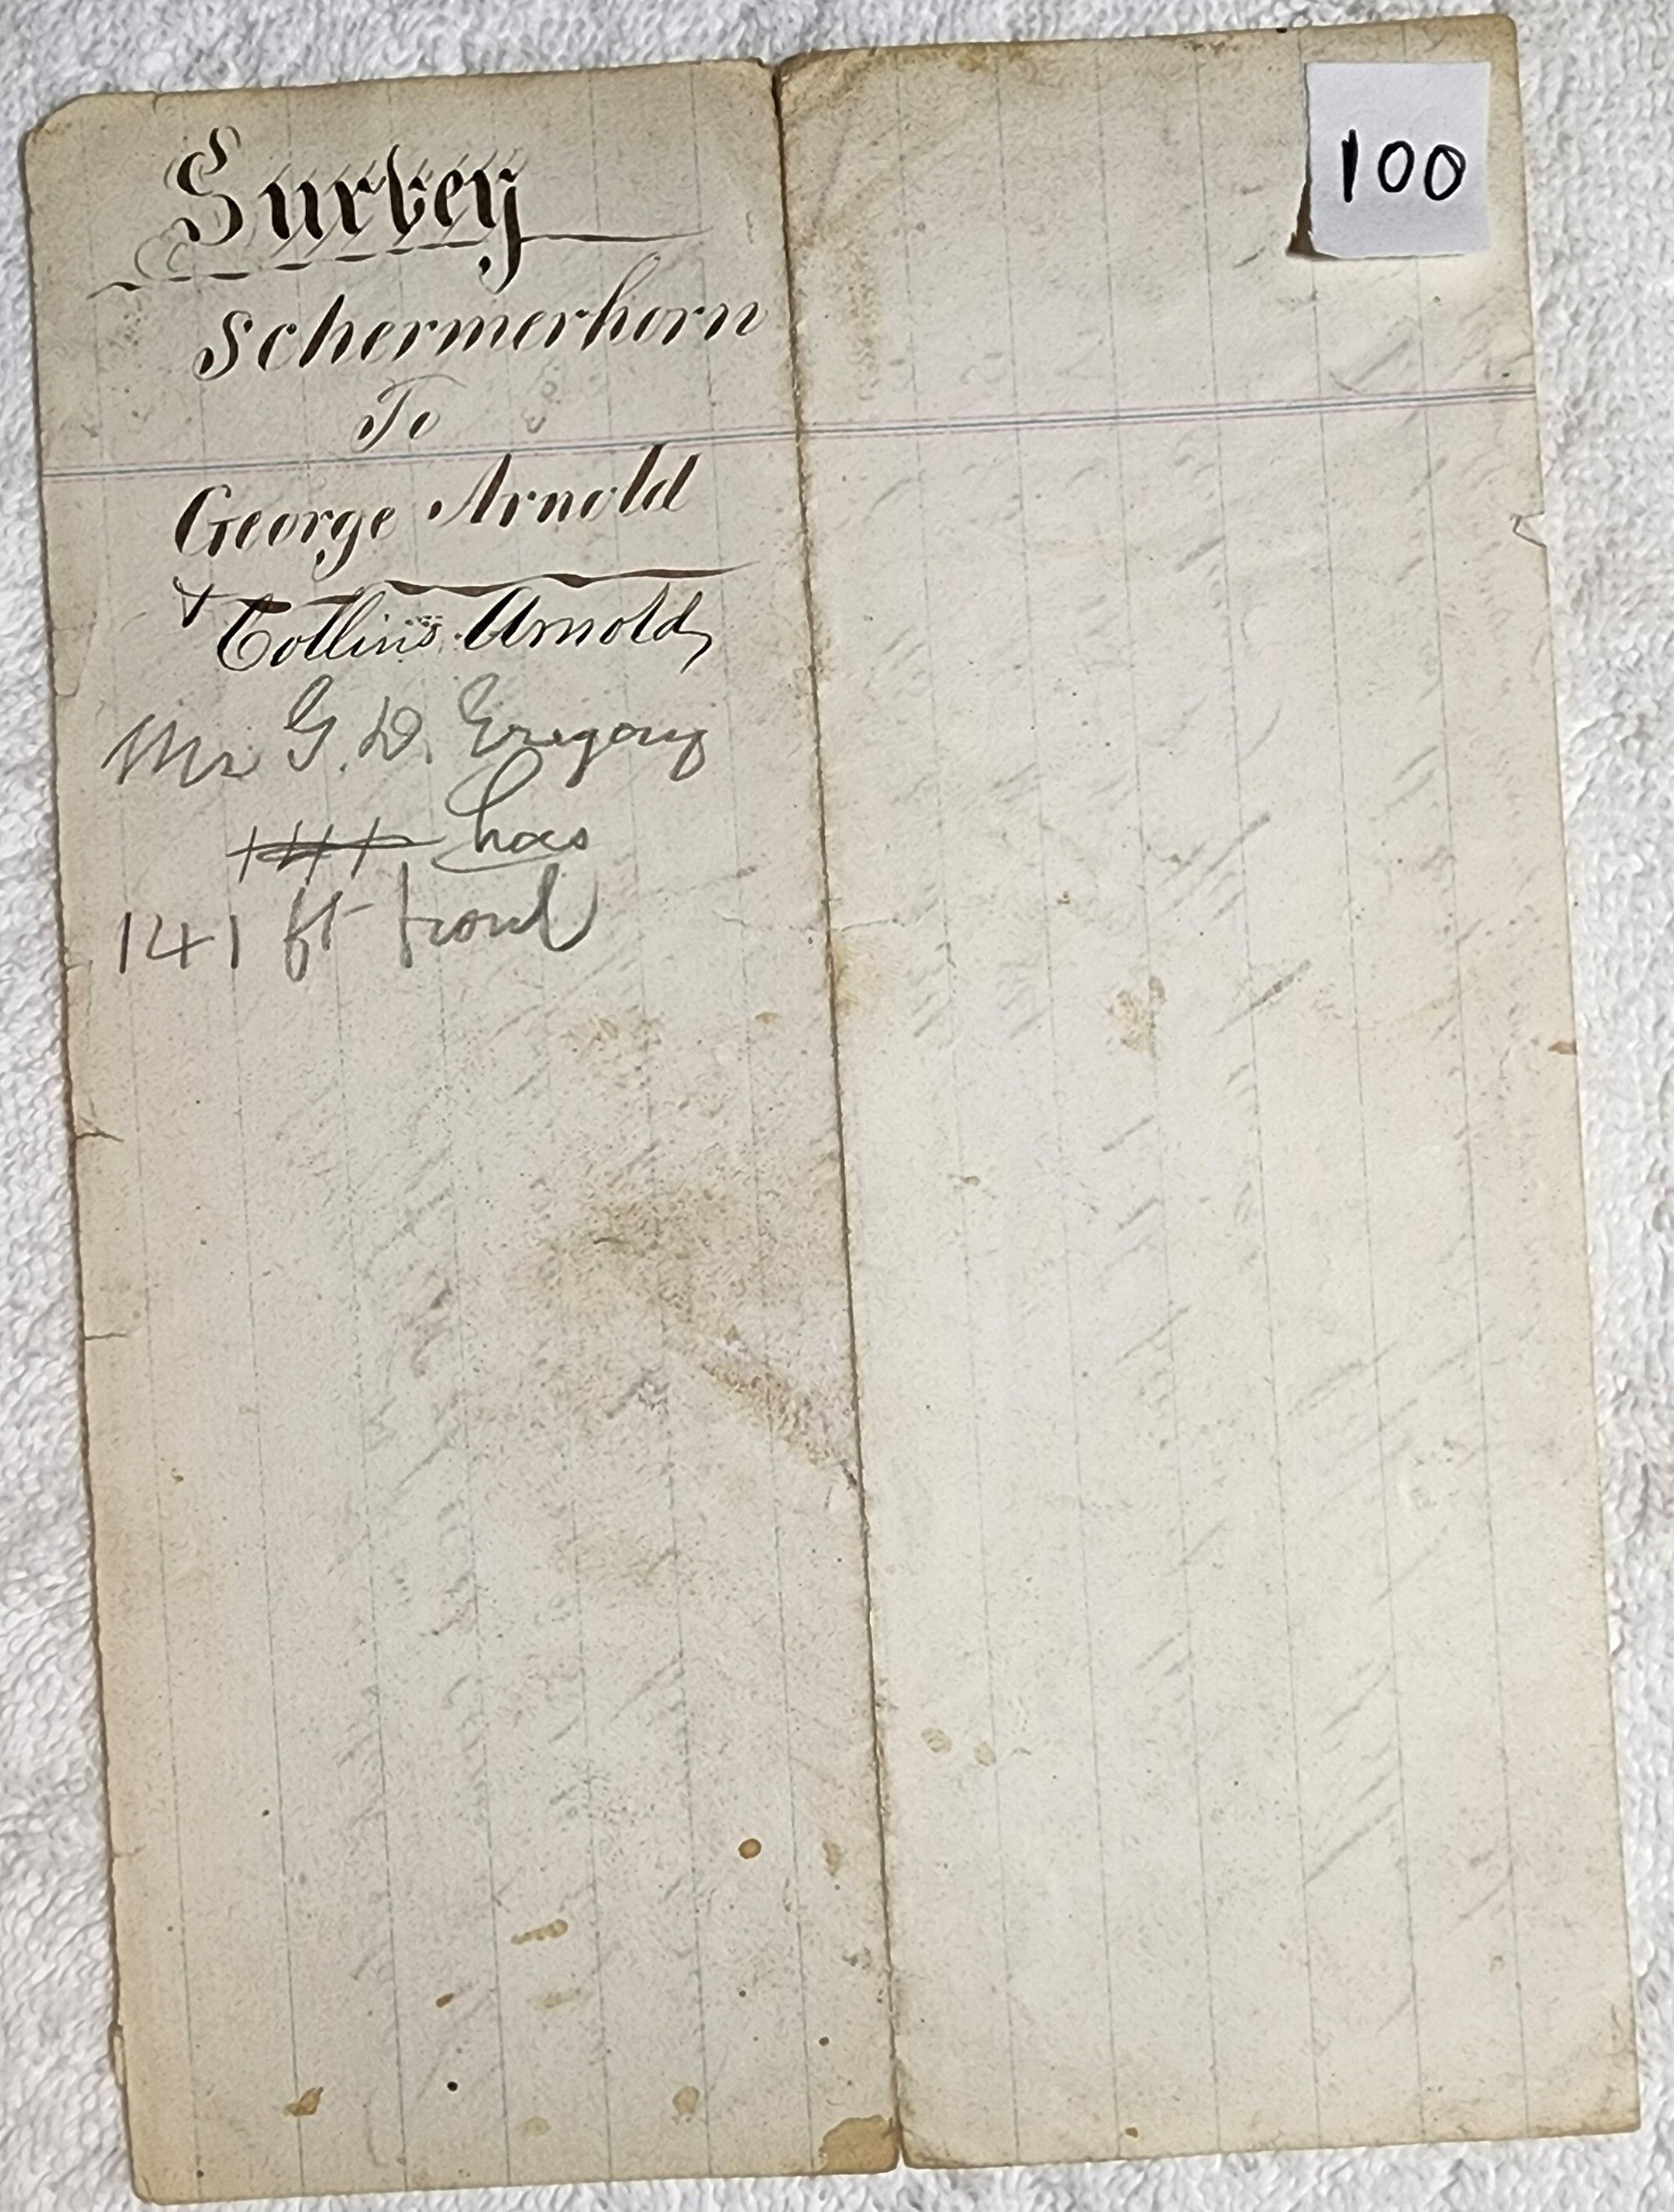 Survey
Schermerhorn
To
George Arnold
& Collins Arnold
Mr G. D. Gregory
has
141 ft front
100